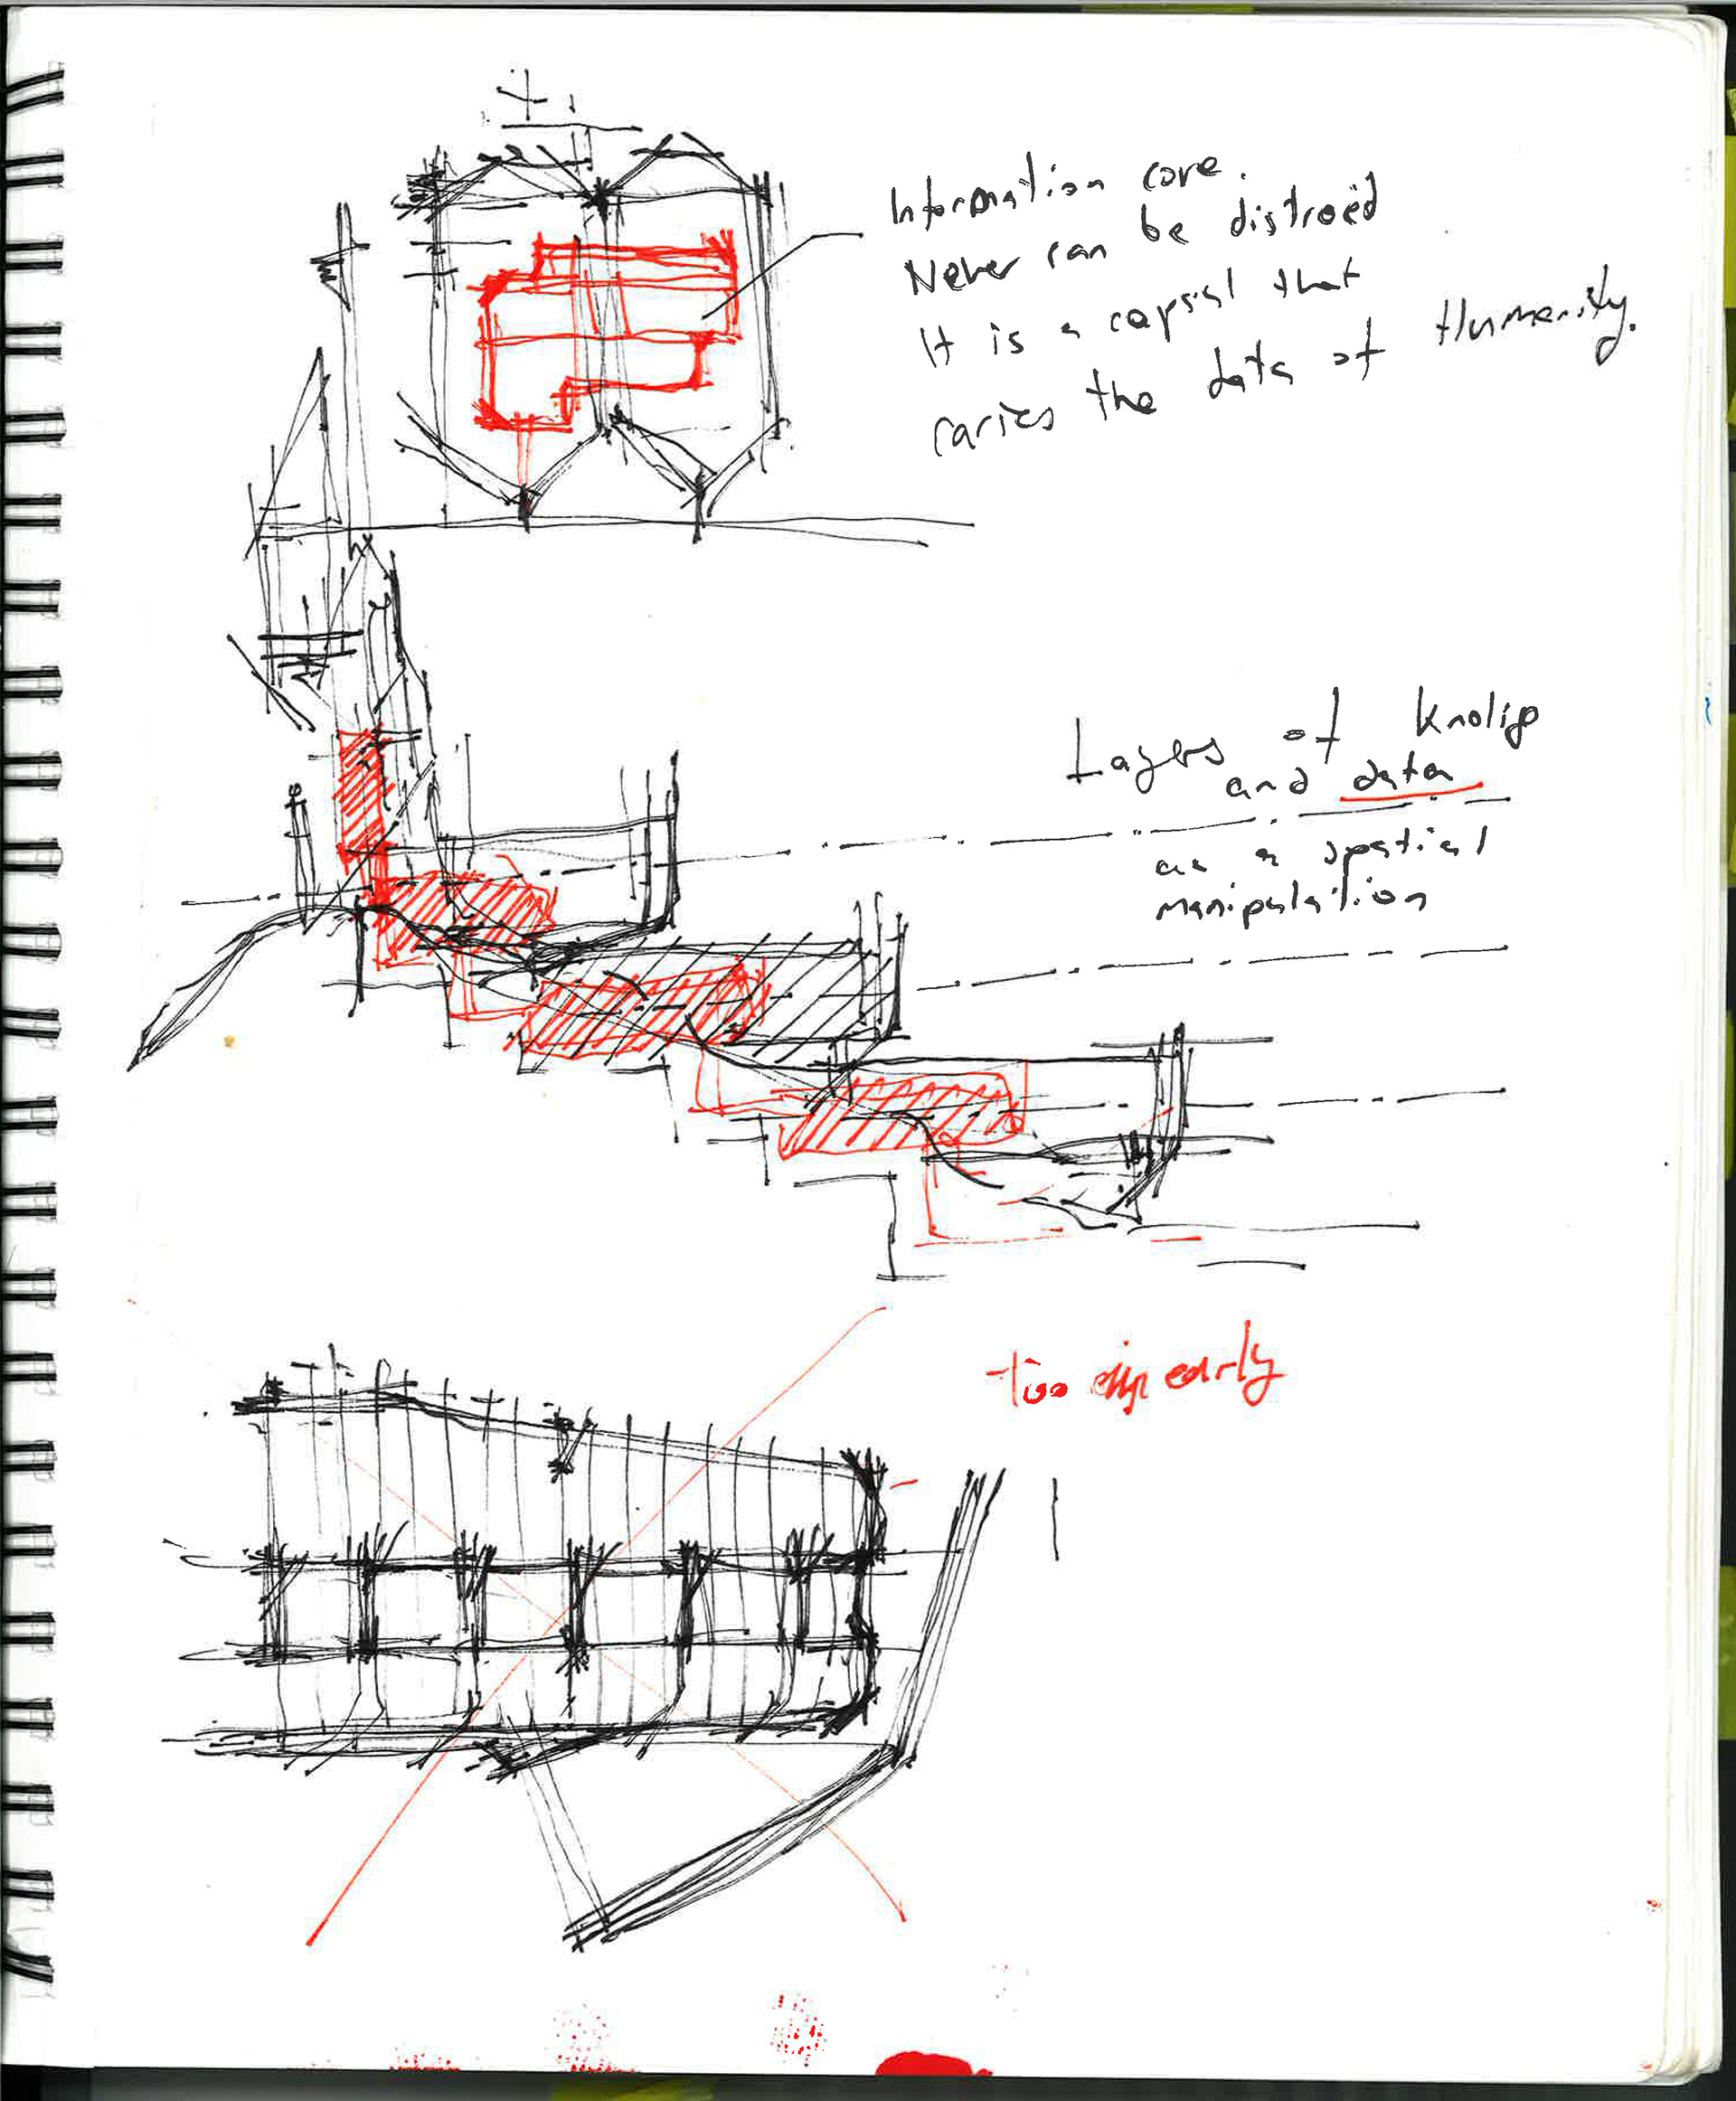 Information core.
Never can be distroed
It is a capsul that
caries the data of Humanity.
Layers of Knolig
and data
as a spatial
manipulation
too early